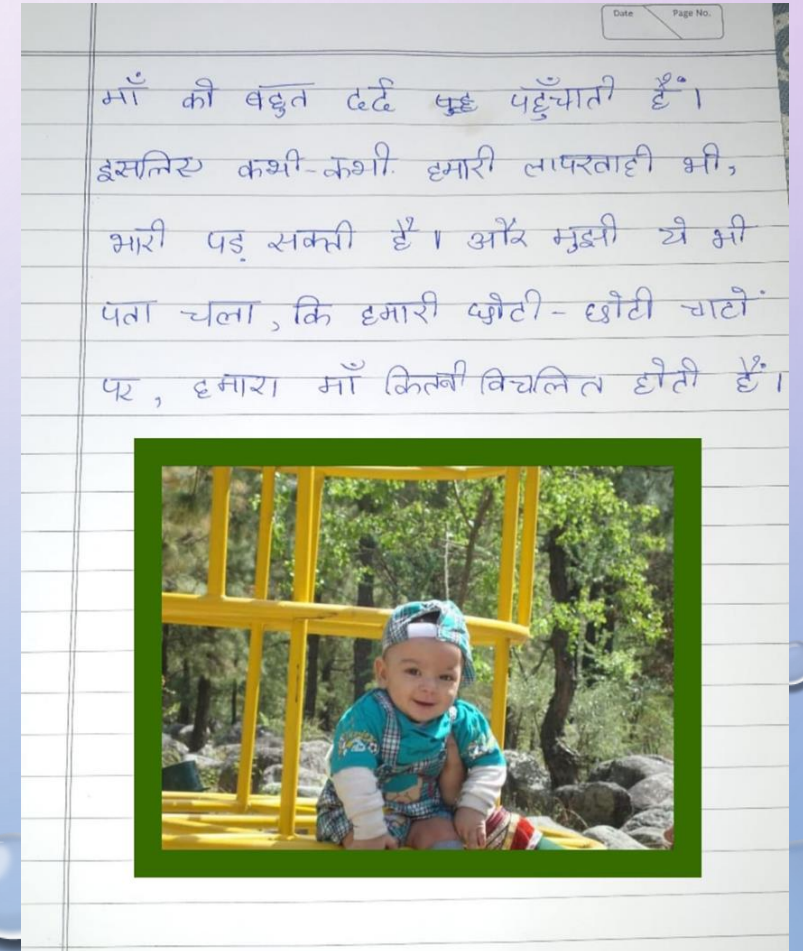 Date Page No.
माँ को बहुत दर्द पहुँचाती हैं।
इसलिए कभी-कभी. हमारी लापरवाही भी,
भारी पड़ सक्ती है। और मुझी ये भी
पता चला, कि हमारी छोटी - छोटी चाटों
पर, हमारा माँ कितनी विचलित होती हैं।